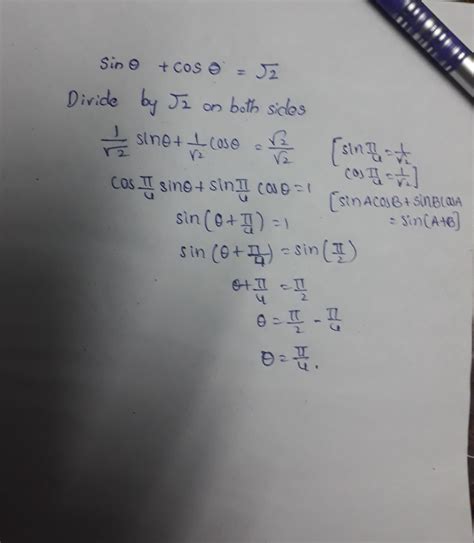 sinθ + cosθ = √2
Divide by √2 on both sides
1/√2 sinθ + 1/√2 cosθ = √2/√2 [sin π/4 = 1/√2
cos π/4 = 1/√2]
cos π/4 sinθ + sin π/4 cosθ = 1 [sinAcosB + sinBcosA
= sin(A+B)]
sin(θ + π/4) = 1
sin(θ + π/4) = sin(π/2)
θ + π/4 = π/2
θ = π/2 - π/4
θ = π/4.